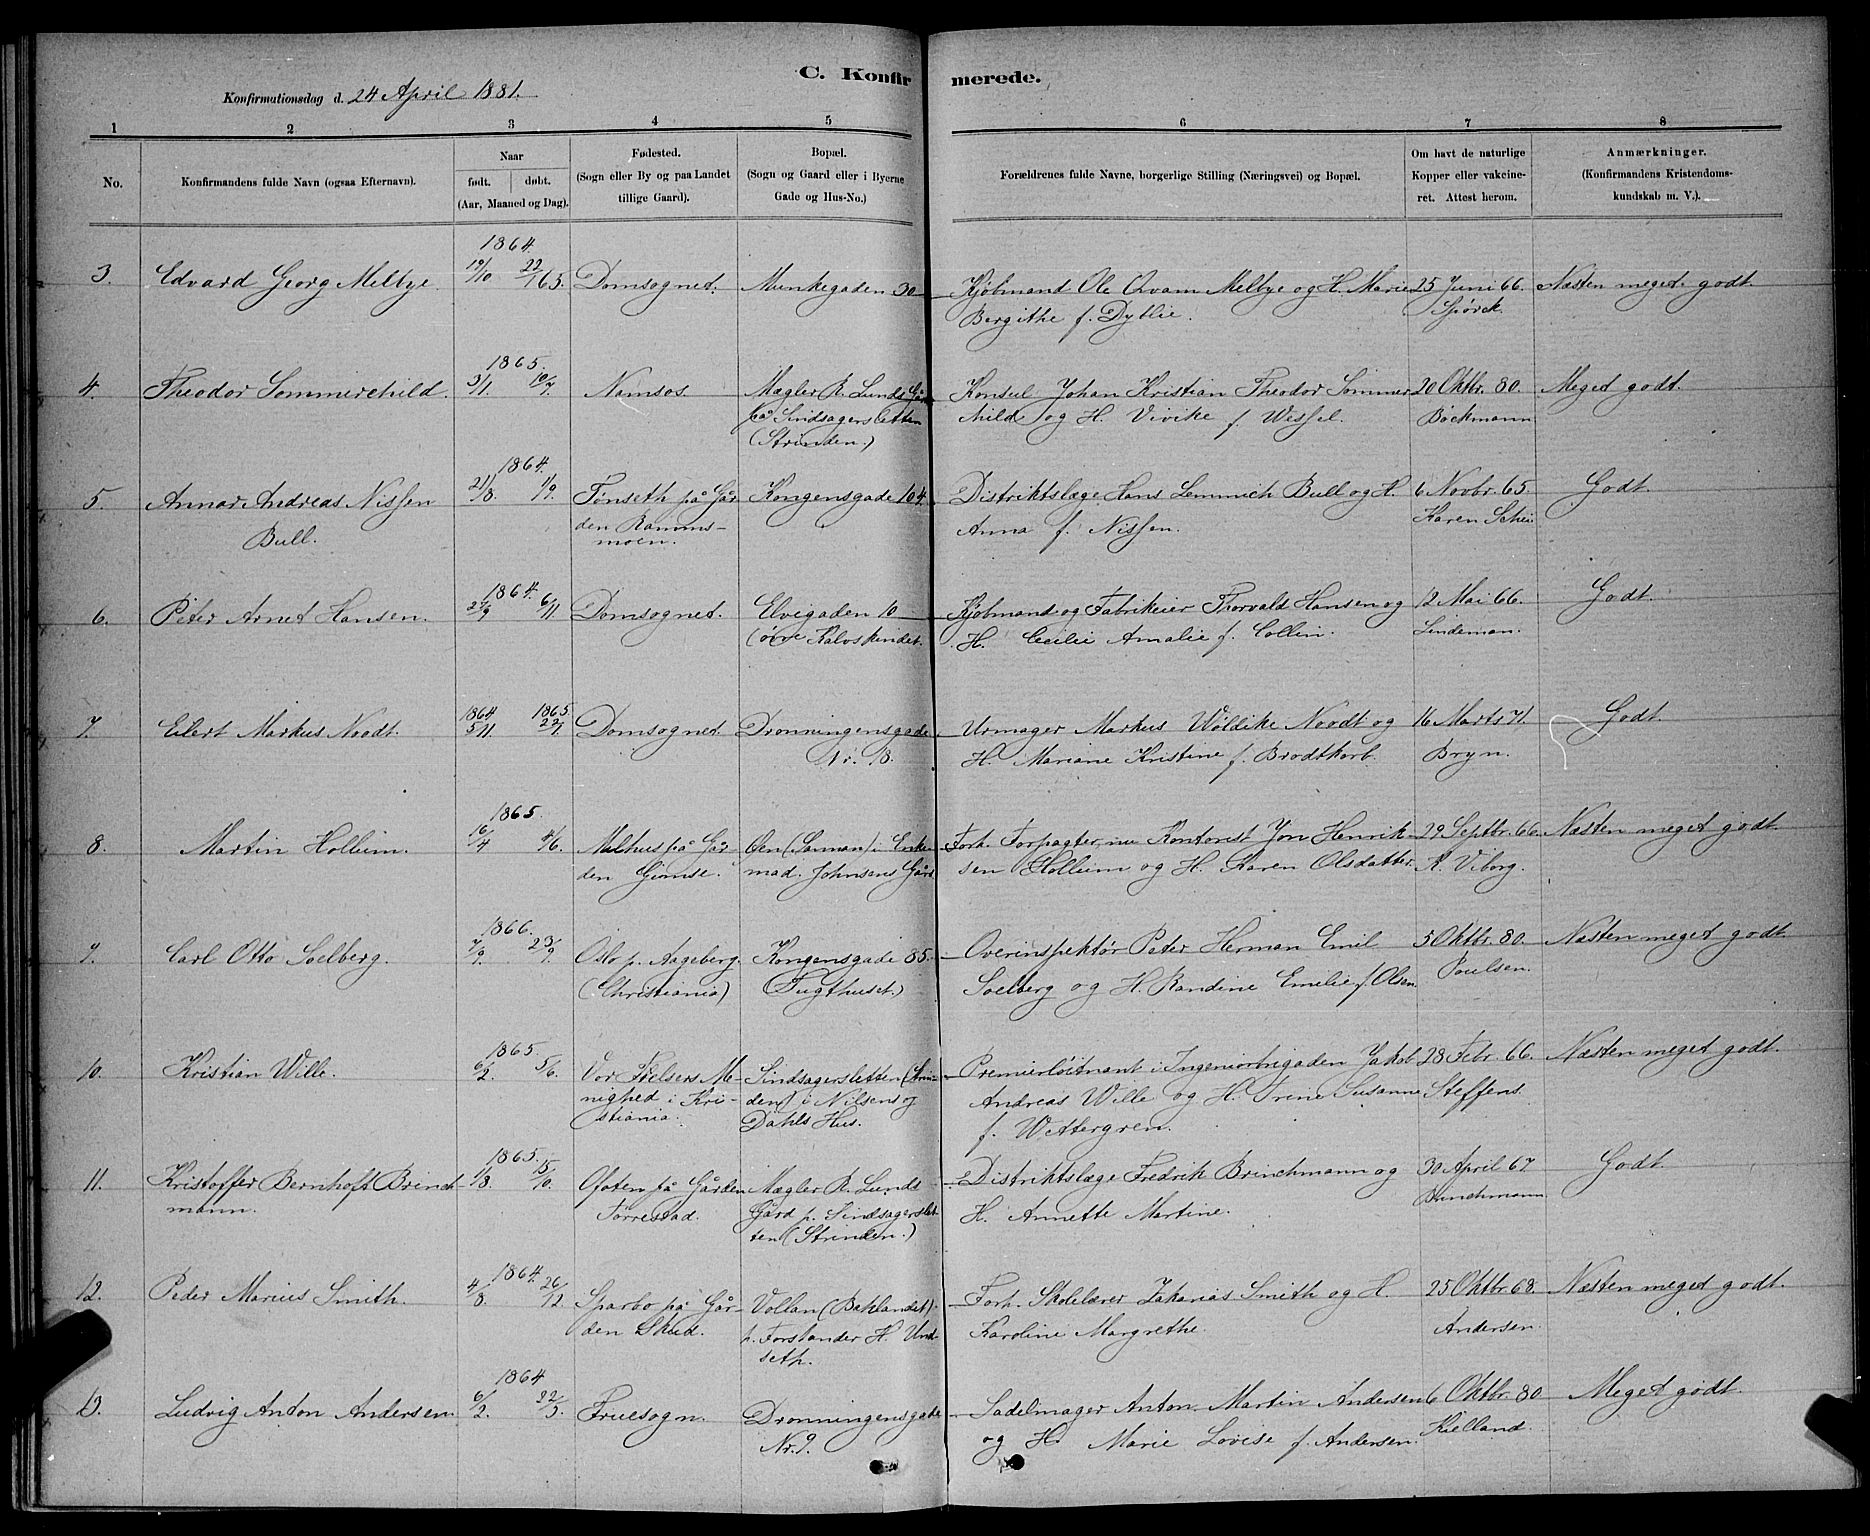 C. Konfirmerede.
Konfirmationsdag d. 24 April 1881.
1 2 3 4 5 6 7 8
No.
Konfirmandens fulde Navn (ogsaa Efternavn).
Naar
født. døbt.
(Aar, Maaned og Dag).
Fødested.
(Sogn eller By og paa Landet
tillige Gaard).
Bopæl.
(Sogn og Gaard eller i Byerne
Gade og Hus-No.)
Forældrenes fulde Navne, borgerlige Stilling (Næringsvei) og Bopæl.
Om havt de naturlige
Kopper eller vakcine-
ret. Attest herom.
Anmærkninger.
(Konfirmandens Kristendoms-
kundskab m. V.).
1864.
3. Edvard Georg Melbye. 19/10 22/1 65. Domsognet. Munkegaden 30 Kjøbmand Ole Qvam Melbye og H. Marie 25 Juni 66. Næsten meget godt.
Bergithe f. Dyblie. Spørck.
1865.
4. Theodor Sommerchild. 3/1. 10/7. Namsos. Mægler R. Lunds Går Konsul Johan Kristian Theodor Sommer 20 Oktbr. 80. Meget godt.
på Sindsagersletten childe og H. Vivike f. Wessel. Bøckmann
(Strinden.)
1864.
5. Annar Andreas Nissen 21/8. 1/9. Tønseth på Går Kongensgade 104. Distriktslæge Hans Lemmich Bull og H. 6 Novbr. 65. Godt.
Bull. den Ramms- Anna f. Nissen. Karen Schei
moen.
1864.
6. Peter Arnet Hansen. 27/9 6/11. Domsognet. Elvegaden 10 Kjøbmand og Fabrikeier Thorvald Hansen og 12 Mai 66. Godt.
(øvre Kalvskindet. H. Cecilie Amalie f. Collin. Lindeman.
1864 1865.
7. Eilert Markus Noodt. 5/11. 22/1. Domsognet. Dronningensgade Urmager Markus Wøldike Noodt og 16 Marts 71. Godt.
Nr. 18. H. Mariane Kristine f. Brodtkorb. Bryn.
1865.
8. Martin Hollum. 16/4 4/6. Melhus på Går Øen (Sannan) i Enke Forh. Forpagter, nu Kontorist Jon Henrik- 29 Septbr. 66. Næsten meget godt.
den Gimse. mad. Johnsens Gård sen Hollum og H. Karen Olsdatter. K. Viborg.
1866.
9. Carl Otto Soelberg. 7/9. 23/9. Oslo p. Aageberg. Kongensgade 85. Overinspektør Peter Herman Emil 5 Oktbr. 80. Næsten meget godt.
(Christiania) (Tugthuset.) Soelberg og H. Randine Emilie f. Olsen Poulsen.
1865.
10. Kristian Wille. 6/2. 5/6. Vor Frelsers Me- Sindsagersletten (Strin- Premierløitnant i Ingeniørbrigaden Jakob 28 Febr. 66. Næsten meget godt.
nighed i Kri- den) i Nilsens og Andreas Wille og H. Trine Susanne Steffens
stiania. Dahls Hus. f. Wettergren.
1865.
11. Kristoffer Bernhoft Brinch 1/8. 15/10. Ofoten på Gården Mægler R. Lunds Distriktslæge Fredrik Brinchmann og 30 April 67. Godt.
mann. Tørrestad. Gård p. Sindsagerslet- H. Annette Martine. Brinchmann
ten (Strinden.)
1864.
12. Peder Marius Smith. 4/8. 26/12. Sparbo på Går- Vollan (Baklandet) Forh. Skolelærer Zakarias Smith og H. 25 Oktbr. 68. Næsten meget godt.
den Skud. p. Forstander H. Und- Karoline Margrethe. Andersen.
seth.
1864
13. Ludvig Anton Andersen. 6/2. 22/5. Fruesogn. Dronningensgade Sadelmager Anton Martin Andersen 6 Oktbr. 80 Meget godt.
Nr. 9. og H. Marie Lovise f. Andersen. Kielland.